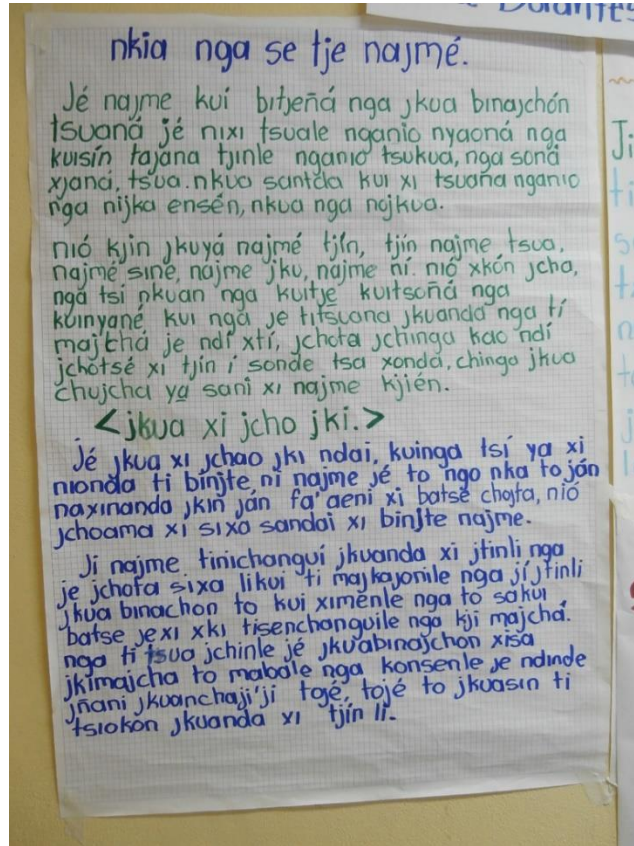 nkia nga se tje najmé.
Jé najme kuí bitjeñá nga jkua binajchón
tsuaná jé nixi tsuale nganio nyaoná nga
kuisín tajana tjinle nganio tsukua, nga soná
xjaná, tsua. nkua santda kui xi tsuaña nganio
nga nijka ensén, nkua nga najkua.
nió kjin jkuyá najmé tjín, tjín najme tsua,
najmé sine, najme jku, najme ní. nió xkón jcha,
nga tsi nkuan nga kuitje kuitsoñá nga
kuinyané kui nga je titsuana jkuanda nga tí
majchá je ndí xtí, jchota jchinga kao ndí
jchotsé xi tjin í sonde tsa xonda, chinga jkua
chujcha ya sani xi najme kjién.
<jkua xi jcho jki.>
Jé jkua xi jchao jki ndai, kuinga tsí ya xi
nionda ti binjte ni najme jé to ngo nka to ján
naxinanda jkin ján fa'aeni xi batse chojta, nió
jchoama xi sixa sandai xi binjte najme.
Ji najme tinichanguí jkuanda xi jtinli nga
je jchota sixa likui ti majkajonile nga jí jtinli
jkua binachon to kui ximénle nga to sakui
batse jexi xki tisenchanguile nga kji majchá.
nga ti tsua jchinle jé jkuabinajchon xisa
jkimajcha to mabale nga konsenle je ndinde
jñani jkuanchaji'ji tojé, tojé to jkuasin ti
tsiokon jkuanda xi tjín li.